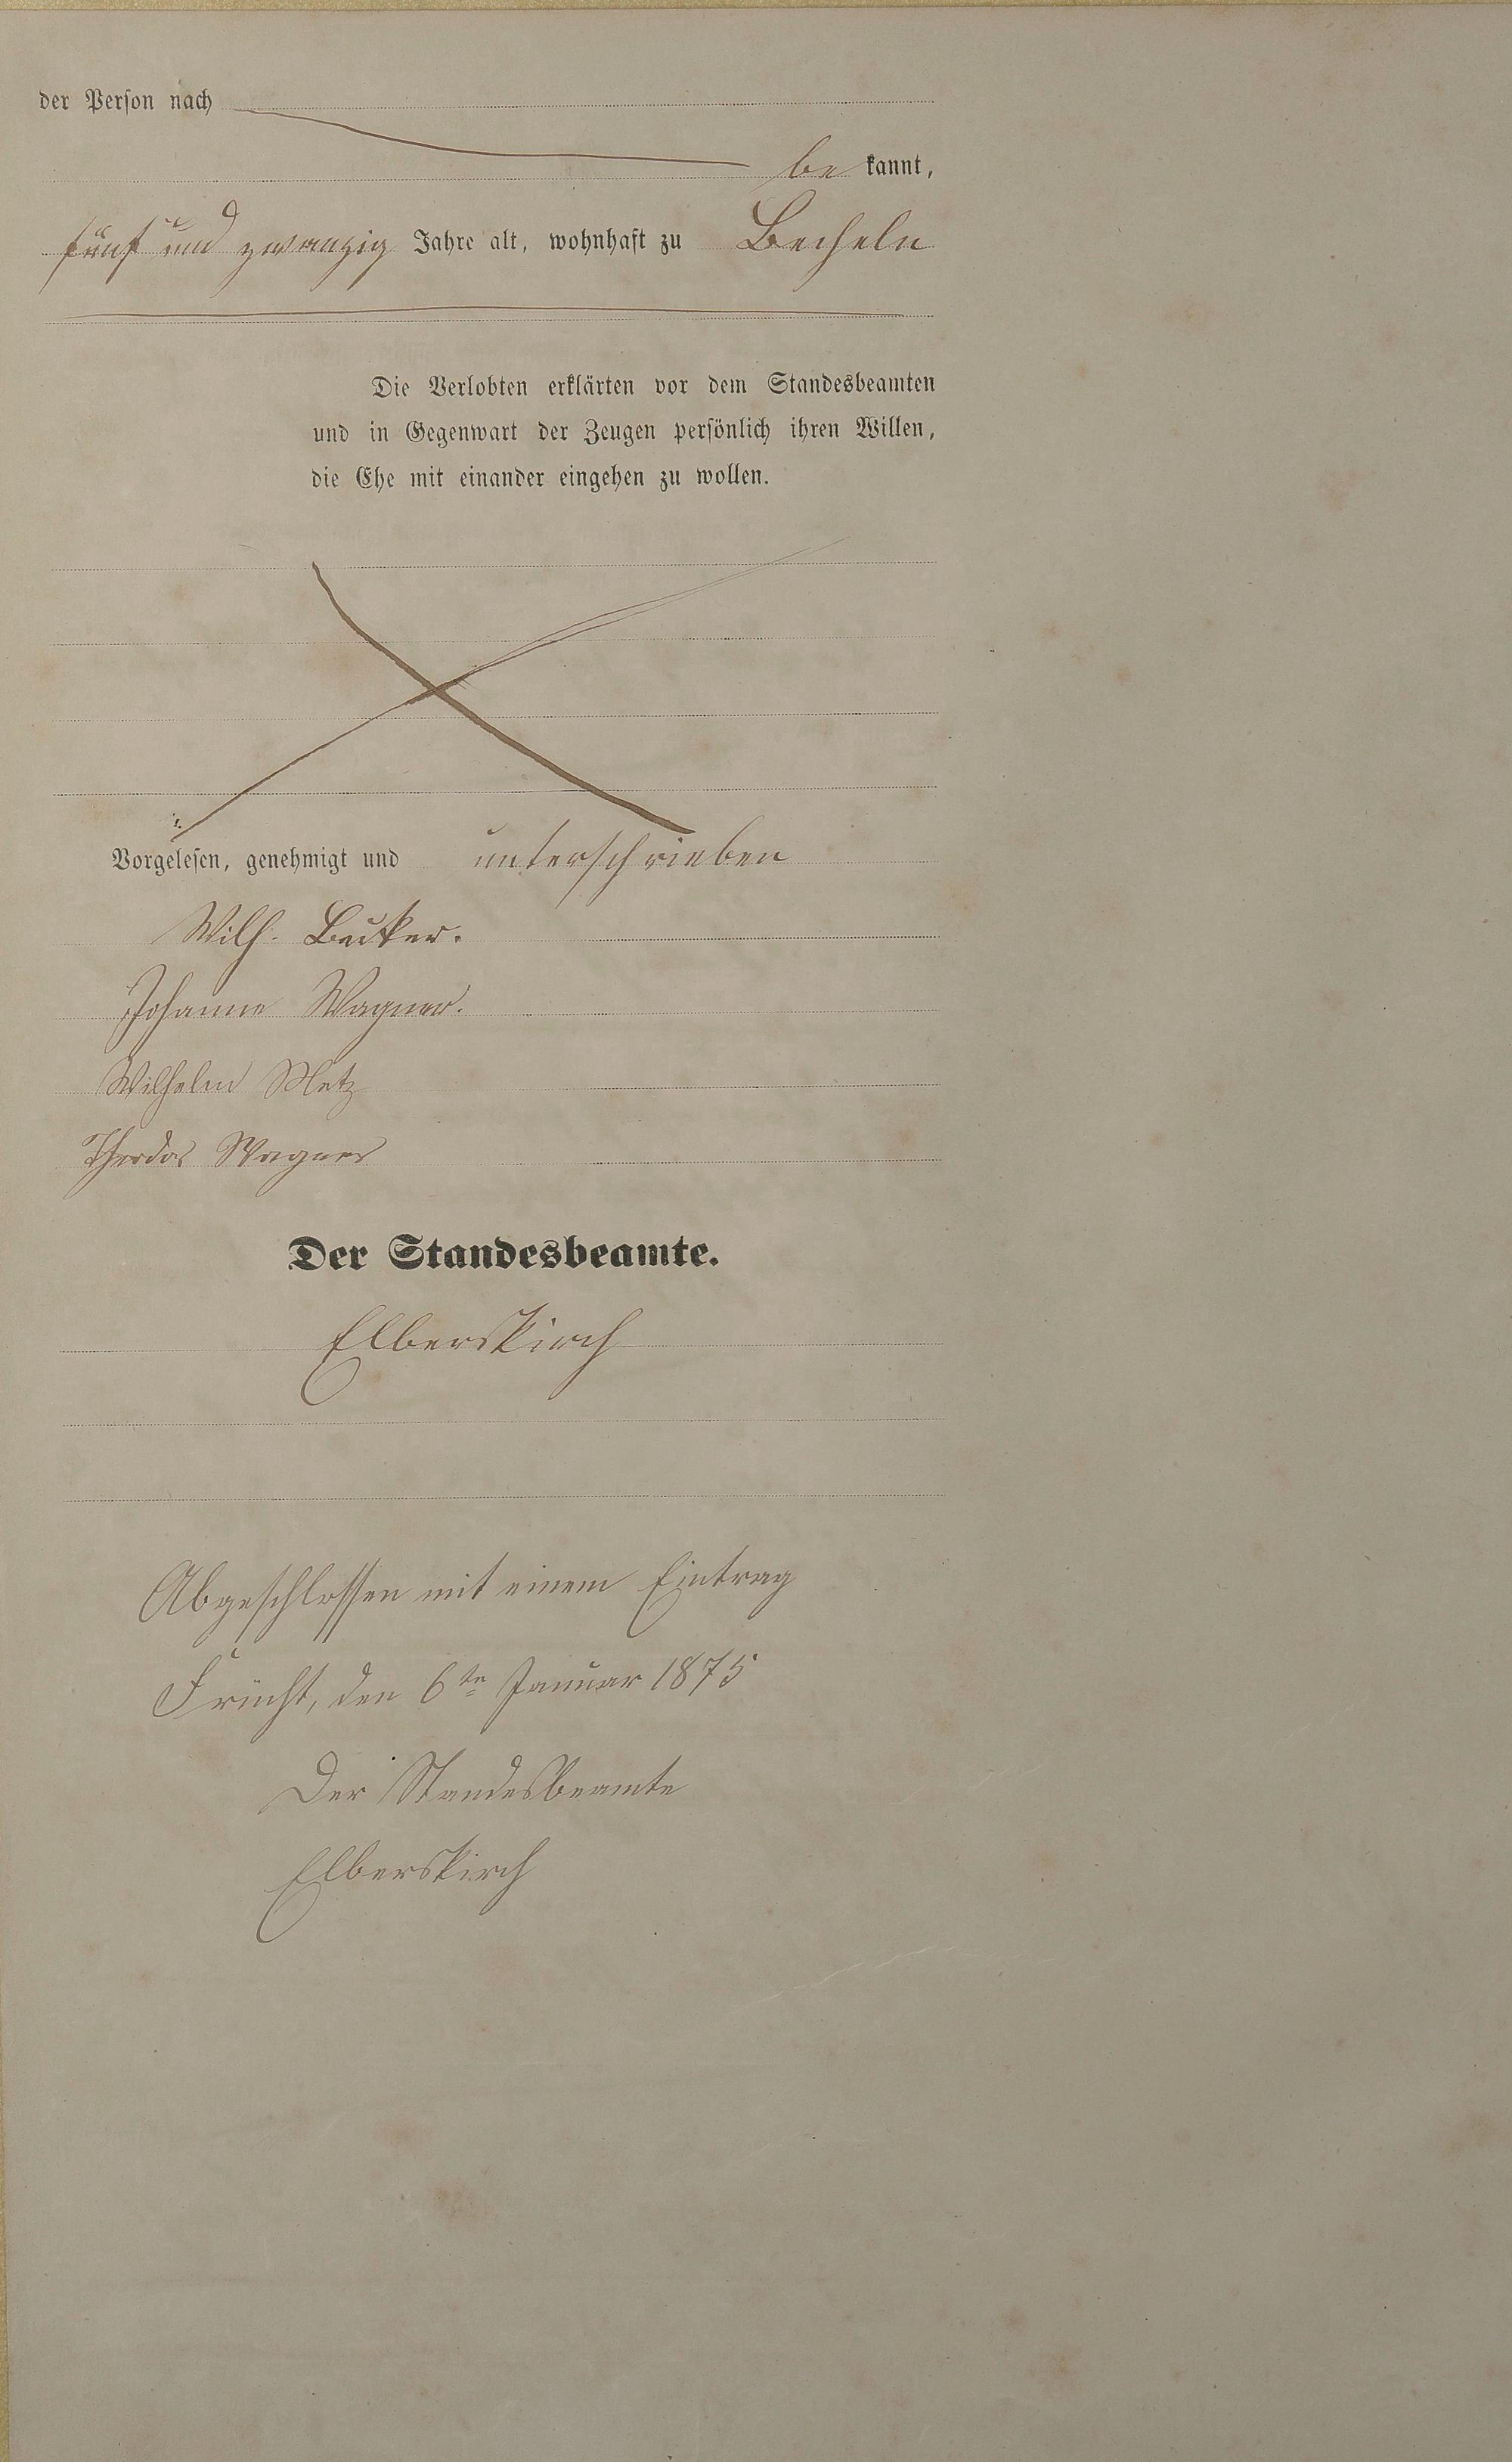 der Person nach
be kannt,
fünf und zwanzig Jahre alt, wohnhaft zu Becheln
Die Verlobten erklärten vor dem Standesbeamten
und in Gegenwart der Zeugen persönlich ihren Willen,
die Ehe mit einander eingehen zu wollen.
Vorgelesen, genehmigt und unterschrieben
Wilh.
Johanne Wagner.
Wilhelm Metz
Theodor Wagner
Der Standesbeamte.
Elberskirch
Abgeschlossen mit einem Eintrag
Frücht, den 6ten Januar 1875
Der Standesbeamte
Elberskirch